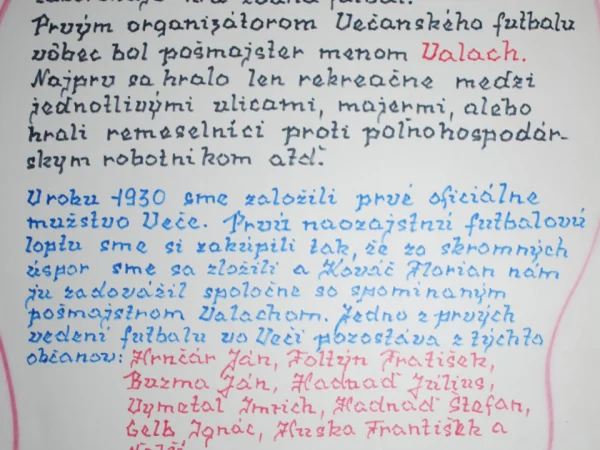 hra zvaná futbal.
Prvým organizátorom Večanského futbalu
vôbec bol pošmajster menom Valach.
Najprv sa hralo len rekreačne medzi
jednotlivými ulicami, majermi, alebo
hrali remeselníci proti poľnohospodár-
skym robotníkom atď.
V roku 1930 sme založili prvé oficiálne
mužstvo Veče. Prvú naozajstnú futbalovú
loptu sme si zakúpili tak, že zo skromných
úspor sme sa zložili a Kováč Florian nám
ju zadovážil spoločne so spomínaným
pošmajstrom Valachom. Jedno z prvých
vedení futbalu vo Veči pozostáva z týchto
občanov: Hrnčár Ján, Foltýn Fratišek,
Buzma Ján, Hadnaď Július,
Vymetal Imrich, Hadnaď Štefan,
Gelb Ignác, Huska František a